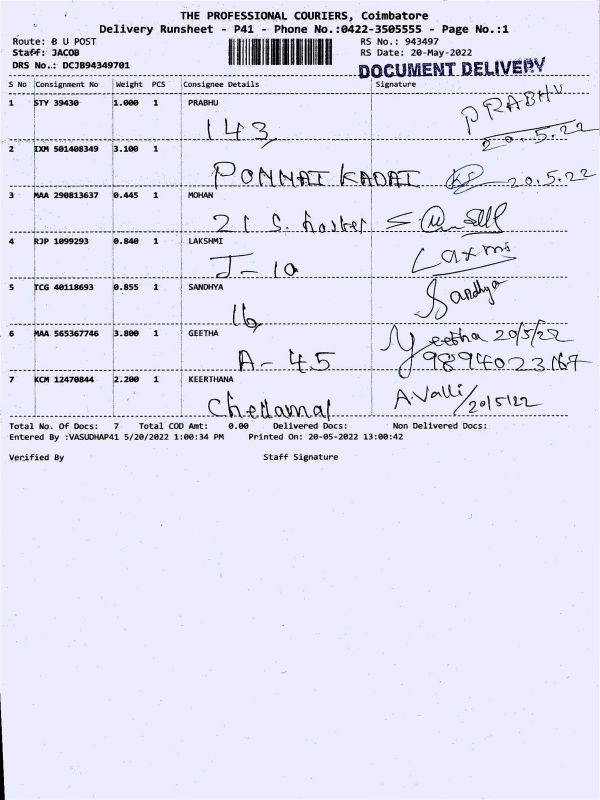 THE PROFESSIONAL COURIERS, Coimbatore
Delivery Runsheet - P41 - Phone No.:0422-3505555 - Page No.:1
Route: B U POST RS No.: 943497
Staff: JACOB RS Date: 20-May-2022
DRS No..: DCJB94349701 DOCUMENT DELIVERY
S No Consignment No Weight PCS Consignee Details Signature
1 STY 39430 1.000 1 PRABHU PRABHU
143 20.5.22
2 IXM 501408349 3.100 1
PONMAI KADAI 20.5.22
3 MAA 290813637 0.445 1 MOHAN
21 S. hostel
4 RJP 1099293 0.840 1 LAKSHMI
J-10 Laxmi
5 TCG 40118693 0.855 1 SANDHYA Sandhya
16
6 MAA 565367746 3.800 1 GEETHA Geetha 20/5/22
A-45 9894023167
7 KCM 12470844 2.200 1 KEERTHANA A.Valli/20/5/22
Chellamal
Total No. Of Docs: 7 Total COD Amt: 0.00 Delivered Docs: Non Delivered Docs:
Entered By :VASUDHAP41 5/20/2022 1:00:34 PM Printed On: 20-05-2022 13:00:42
Verified By Staff Signature